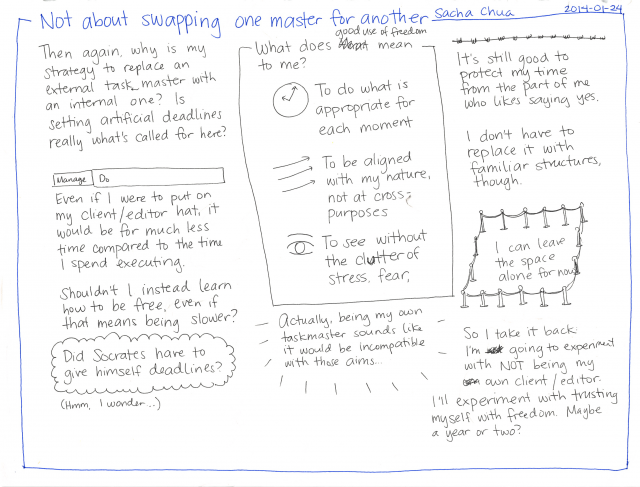 Not about swapping one master for another
Sacha Chua
2014-01-24
Then again, why is my
strategy to replace an
external task master with
an internal one? Is
setting artificial deadlines
really what's called for here?
Manage Do
Even if I were to put on
my client/editor hat, it
would be for much less
time compared to the time
I spend executing.
Shouldn't I instead learn
how to be free, even if
that means being slower?
Did Socrates have to
give himself deadlines?
(Hmm, I wonder...)
good use of freedom
What does mean
to me?
To do what is
appropriate for
each moment
To be aligned
with my nature,
not at cross-
purposes
To see without
the clutter of
stress, fear,
Actually, being my own
taskmaster sounds like
it would be incompatible
with those aims...
It's still good to
protect my time
from the part of me
who likes saying yes.
I don't have to
replace it with
familiar structures,
though.
I can leave
the space
alone for now
So I take it back.
I'm going to experiment
with NOT being my
own client/editor.
I'll experiment with trusting
myself with freedom. Maybe
a year or two?